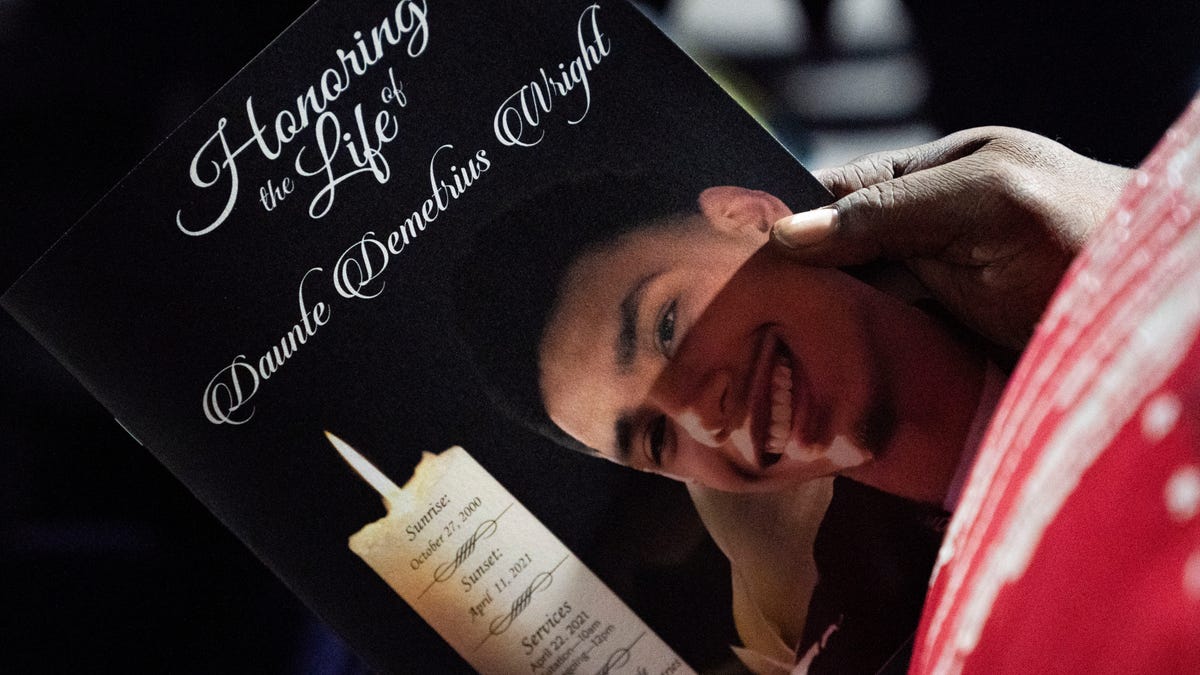 Honoring
the Life of
Daunte Demetrius Wright
Sunrise:
October 27, 2000
Sunset:
April 11, 2021
Services
April 22, 2021
10am
12pm